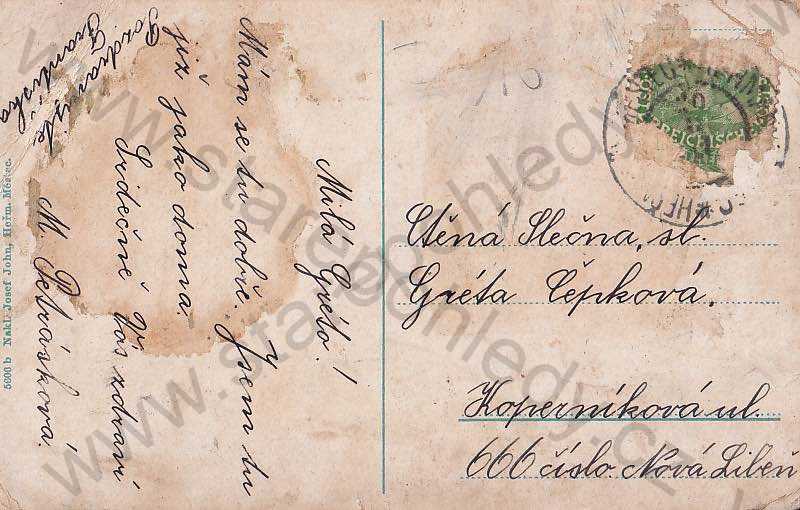 Milá Gréto!
Mám se tu dobře. Jsem tu
již jako doma.
Srdečně Vás zdraví
M. Petrásková.
Pozdravujte
Františka
5000 b Nakl. Josef John, Heřm. Městec.
Ctěná Slečna, sl.
Gréta Čepková.
Koperníková ul.
666 číslo Nová Libeň
www.stare-pohledy.cz